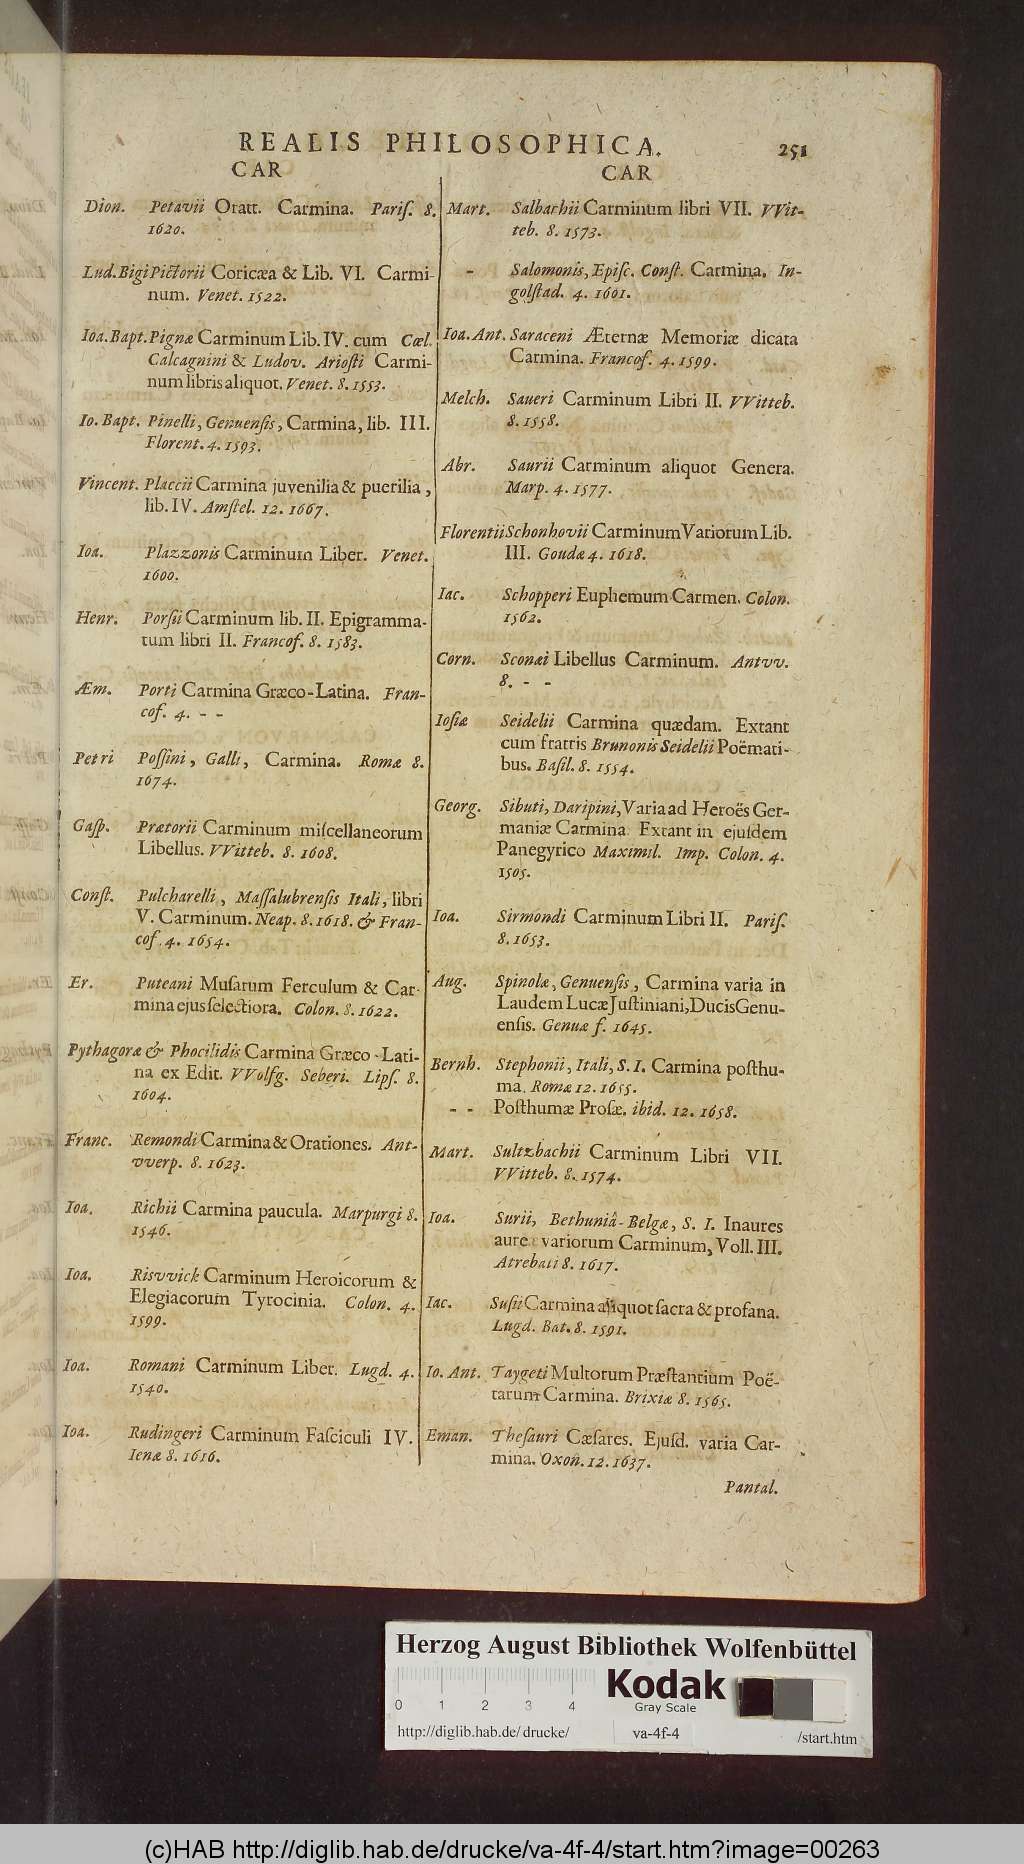 REALIS PHILOSOPHICA. 251
CAR
Dion. Petavii Oratt. Carmina. Pariſ. 8.
1620.
Lud. Bigi Pictorii Coricæa & Lib. VI. Carmi-
num. Venet. 1522.
Ioa. Bapt. Pignæ Carminum Lib. IV. cum Cæl.
Calcagnini & Ludov. Arioſti Carmi-
num libris aliquot. Venet. 8. 1553.
Io. Bapt. Pinelli, Genuenſis, Carmina, lib. III.
Florent. 4. 1593.
Vincent. Placcii Carmina juvenilia & puerilia,
lib. IV. Amſtel. 12. 1667.
Ioa. Plazzonis Carminum Liber. Venet.
1600.
Henr. Porſii Carminum lib. II. Epigramma-
tum libri II. Francof. 8. 1583.
Æm. Porti Carmina Græco-Latina. Fran-
cof. 4. - -
Petri Poſſini, Galli, Carmina. Romæ 8.
1674.
Gaſp. Prætorii Carminum miſcellaneorum
Libellus. VVitteb. 8. 1608.
Conſt. Pulcharelli, Maſſalubrenſis Itali, libri
V. Carminum. Neap. 8. 1618. & Fran-
cof. 4. 1654.
Er. Puteani Muſarum Ferculum & Car-
mina ejus ſelectiora. Colon. 8. 1622.
Pythagoræ & Phocilidis Carmina Græco-Lati-
na ex Edit. VVolfg. Seberi. Lipſ. 8.
1604.
Franc. Remondi Carmina & Orationes. Ant-
vverp. 8. 1623.
Ioa. Richii Carmina paucula. Marpurgi 8.
1546.
Ioa. Risvvick Carminum Heroicorum &
Elegiacorum Tyrocinia. Colon. 4.
1599.
Ioa. Romani Carminum Liber. Lugd. 4.
1540.
Ioa. Rudingeri Carminum Faſciculi IV.
Ienæ 8. 1616.
CAR
Mart. Salbachii Carminum libri VII. VVit-
teb. 8. 1573.
- Salomonis, Epiſc. Conſt. Carmina. In-
golſtad. 4. 1601.
Ioa. Ant. Saraceni Æternæ Memoriæ dicata
Carmina. Francof. 4. 1599.
Melch. Saueri Carminum Libri II. VVitteb.
8. 1558.
Abr. Saurii Carminum aliquot Genera.
Marp. 4. 1577.
Florentii Schonhovii Carminum Variorum Lib.
III. Goudæ 4. 1618.
Iac. Schopperi Euphemum Carmen. Colon.
1562.
Corn. Sconæi Libellus Carminum. Antvv.
8. - -
Ioſiæ Seidelii Carmina quædam. Extant
cum fratris Brunonis Seidelii Poëmati-
bus. Baſil. 8. 1554.
Georg. Sibuti, Daripini, Varia ad Heroës Ger-
maniæ Carmina. Extant in ejuſdem
Panegyrico Maximil. Imp. Colon. 4.
1505.
Ioa. Sirmondi Carminum Libri II. Pariſ.
8. 1653.
Aug. Spinolæ, Genuenſis, Carmina varia in
Laudem Lucæ Juſtiniani, Ducis Genu-
enſis. Genuæ f. 1645.
Bernh. Stephonii, Itali, S. I. Carmina poſthu-
ma. Romæ 12. 1655.
- - Poſthumæ Proſæ. ibid. 12. 1658.
Mart. Sultzbachii Carminum Libri VII.
VVitteb. 8. 1574.
Ioa. Surii, Bethuniâ-Belgæ, S. I. Inaures
aureæ variorum Carminum, Voll. III.
Atrebati 8. 1617.
Iac. Suſii Carmina aliquot ſacra & profana.
Lugd. Bat. 8. 1591.
Io. Ant. Taygeti Multorum Præſtantium Poë-
tarum Carmina. Brixiæ 8. 1565.
Eman. Theſauri Cæſares. Ejuſd. varia Car-
mina. Oxon. 12. 1637.
Pantal.
Herzog August Bibliothek Wolfenbüttel
Kodak
Gray Scale
0 1 2 3 4
http://diglib.hab.de/drucke/ va-4f-4 /start.htm
(c)HAB http://diglib.hab.de/drucke/va-4f-4/start.htm?image=00263